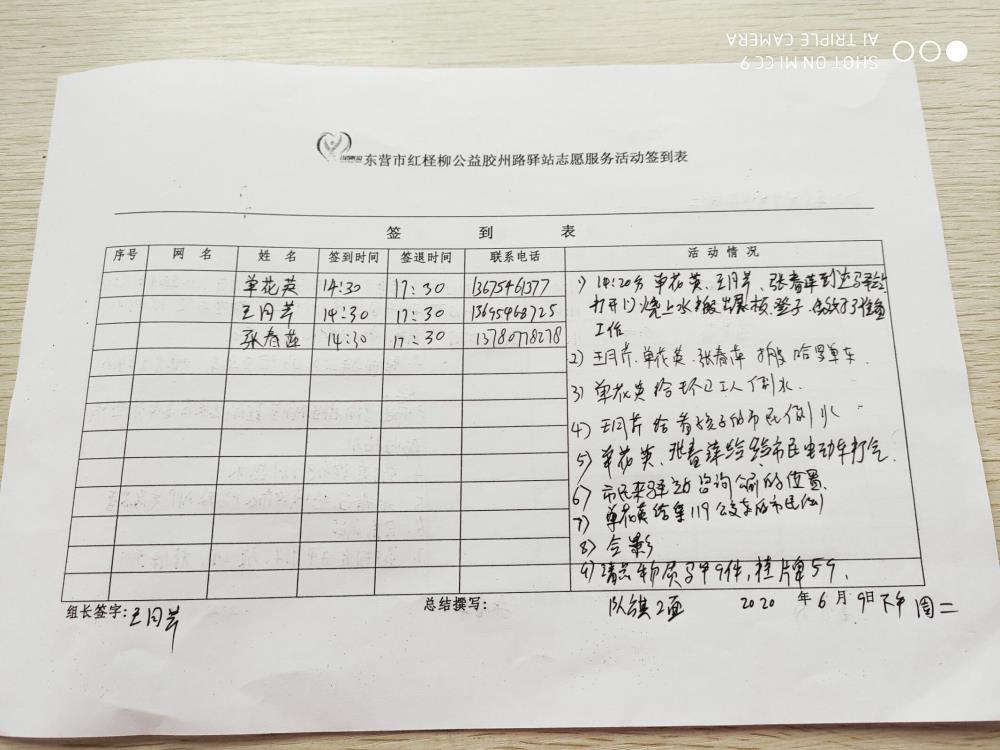 SHOT ON MI CC9
AI TRIPLE CAMERA
东营市红柽柳公益胶州路驿站志愿服务活动签到表
签 到 表
序号 网 名 姓 名 签到时间 签退时间 联系电话 活动情况
单花英 14:30 17:30 13675461377
王月芹 14:30 17:30 13695468725
张春萍 14:30 17:30 13780778278
1) 14:20分 单花英、王月芹、张春萍到达驿站
打开门 烧上水 搬出展板、登子、做好了准备
工作
2) 王月芹、单花英、张春萍 搬 哈罗单车.
3) 单花英给环卫工人倒水.
4) 王月芹给着孩子的市民倒水
5) 单花英、张春萍给市民电动车打气.
6) 市民来驿站咨询的位置.
7) 单花英给119公交车的市民倒
8) 合影
9) 清点物质马甲9件,挂牌5个.
组长签字:王月芹 总结撰写: 队旗2面 2020年6月9日下午 周二